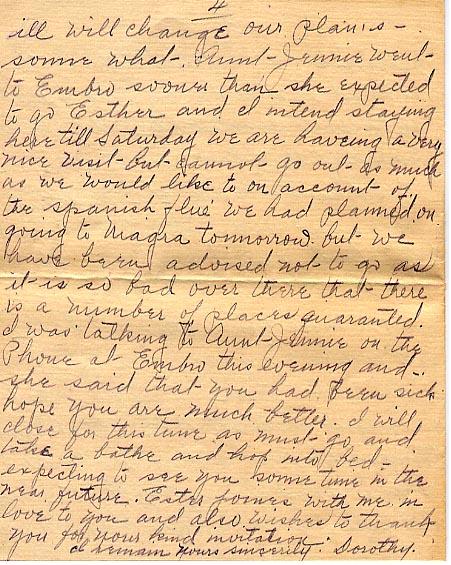 4
ill will change our plan's -
some what. Aunt Jennie went
to Embro sooner than she expected
to go Esther and I intend staying
here till Saturday we are haveing a very
nice visit but cannot go out as much
as we would like to on account of
the spanish flue we had planned on
going to Magra tomorrow. but we
have been advised not to go as
it is so bad over there that there
is a number of places quaranted.
I was talking to Aunt Jennie on the
Phone at Embro this evening and
she said that you had been sick
hope you are much better. I will
close for this time as must go and
take a bathe and hop into bed -
expecting to see you sometime in the
near future. Ester joines with me in
love to you and also wishes to thank
you for your kind invitation.
I remain yours sincerity. Dorothy.